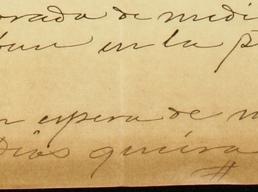 orada de medi
ban en la p
n espera de n
Dios quiera